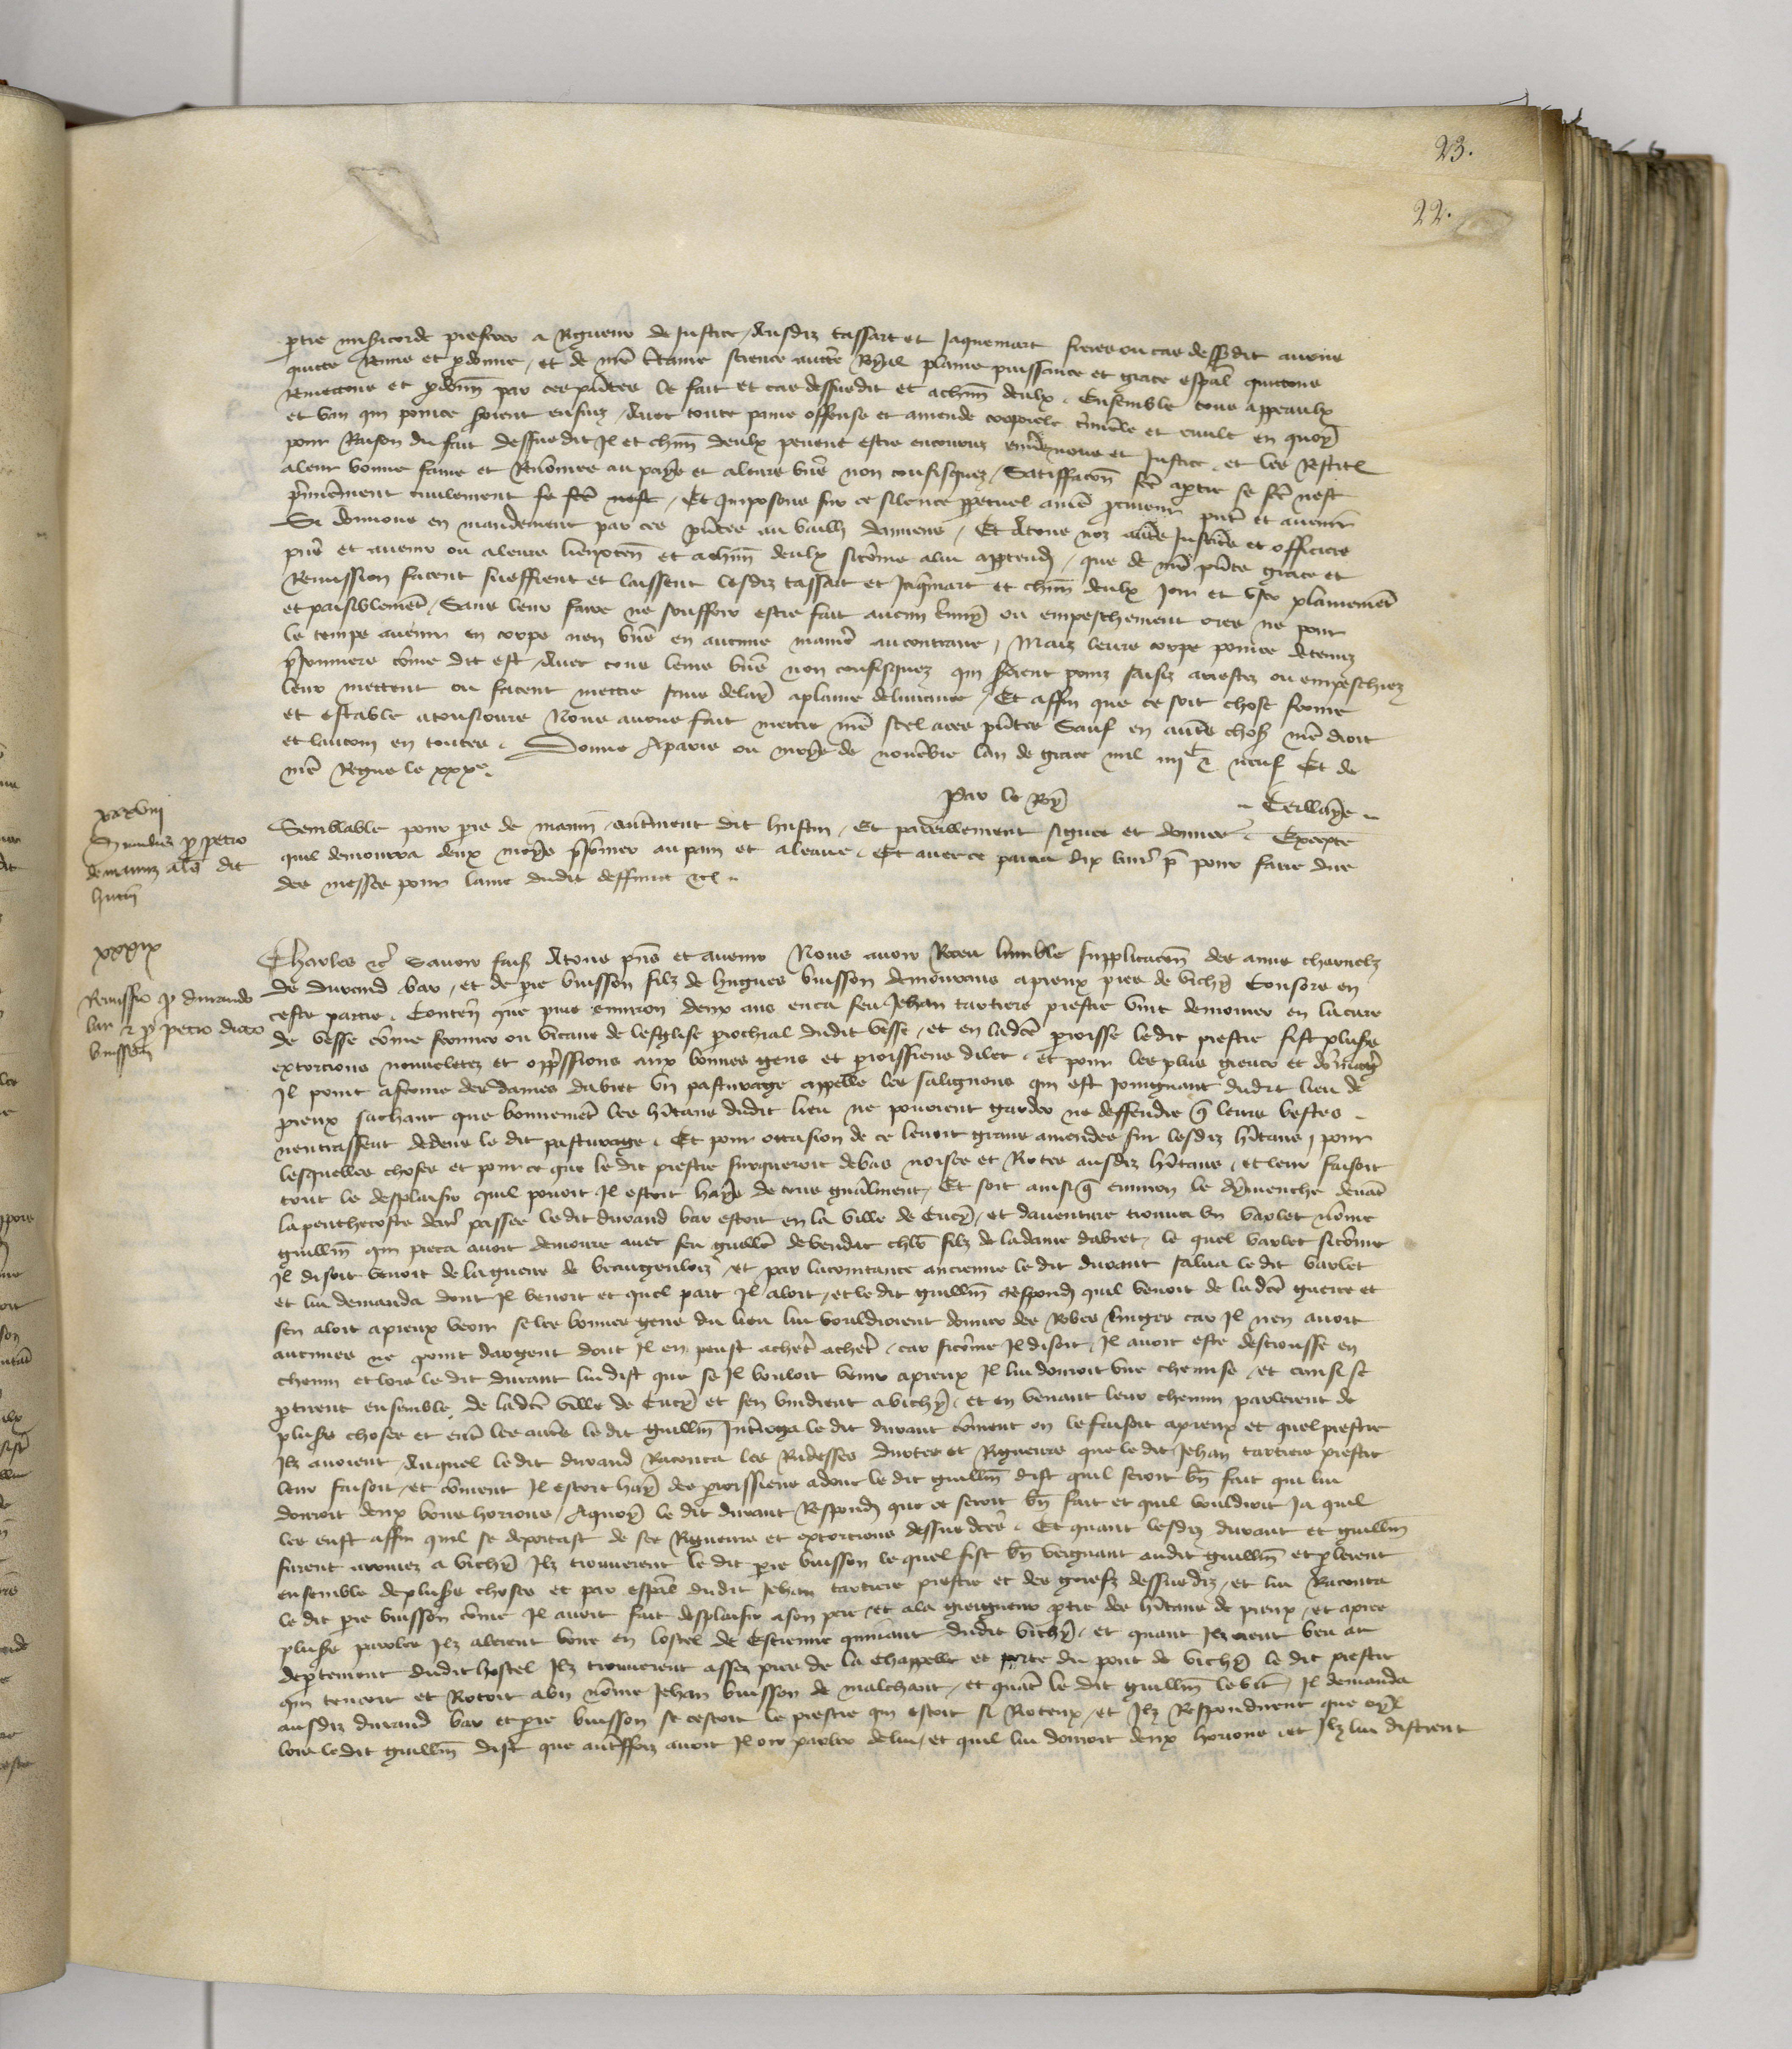 23.
22.
ptie misericorde preferer a Rigueur de Justice / Ausdiz tassart et Jaquemart freres ou cas dessusdit avons
quicte Remis et pdonne / et de nre ctaine science auctte Royal plaine puissance et grace espal quictons
Remettons et pdonns par ces pntes le fait et cas dessusdit et achun deulx . Ensemble tous appeaulx
et ban qui pource seroient ensuiz / Avec toute paine offense et amende corporele cminele et civile en quoy
pour Raison du fait dessusdit Il et chun deulx pevent estre encouruz envs nous et Justice . et les Restit
aleur bonne fame et Renomee au pays et aleurs biens non confisquez / Satiffacon fce aptie se fce nest
pmierement civilement se fce nest / Et Imposons sur ce silence ppetuel anre pcureur pnt et avenir
Si donnons en mandement par ces pntes au bailli damiens / Et Atous noz autres Justiciers et officiers
pns et avenir ou aleurs lieuxten et achun deulx sicome alui aptendra / que de nre pnte grace et
Remission facent sueffrent et laissent lesdiz tassart et Jaqmart et chun deulx Joir et user plainement
et paisiblement / Sans leur faire ne souffrir estre fait aucun ennuy ou empeschement ores ne pour
le temps avenir en corps nen biens en aucune maniere au contraire / Mais leurs corps pource detenuz
prisonniers come dit est / Avec tous leurs biens non confisquez qui seroient prins saisiz arrestez ou empeschiez
leur mettent ou facent mettre sans delay aplaine delivrance / Et affin que ce soit chose ferme
et estable atousiours Nous avons fait mettre nre seel aces pntes Sauf en autres choses nre droit
et lautrui en toutes . Donne Aparis ou moys de novembre lan de grace mil iiijc & neuf Et de
nre Regne le xxxe
Par le Roy
xxxviii
Semblable pour pre de manin / autrement dit hustin / Et pareillement signee et donnee . Excepte
quil demourra deux moys psonnier au pain et aleaue . Et avec ce paiera dix livres p pour faire dire
des messes pour lame dudit deffunct &c
xxxix
Remissio p durando
bar & p petro dicto
buisson
Charles &c Savoir fais Atous pns et avenir Nous avoir Receu lumble supplicacon des amis charnelz
de durand bar / et de pre buisson filz de hugues buisson demourans apreux pres de vichy Consors en
ceste partie . Contenant que puis environ deux ans enca feu Jehan tartiere prestre vint demourer en la cure
de vesse come fermier ou vicaire de lesglise prochial dudit vesse / et en ladce proisse ledit prestre fist pluss
extorcions nouveletez et oppssions aux bonnes gens et proissiens dilec . et pour les plus grever et domag
Il print aferme des dames dabret un pasturage appelle les salignons qui est Joingnant dudit lieu de
preux sachant que bonnement les hitans dudit lieu ne povoient garder ne deffendre q leurs bestes
nentrassent dedens le dit pasturage . Et pour occasion de ce levoit grans amendes sur lesdiz hitans / pour
lesquelles choses et pour ce que le dit prestre surqueroit debas noises et Rotes ausdiz hitans / et leur faisoit
tout le desplaisir quil povoit Il estoit hays de tous gnalment / Et soit ainsi q environ le dymenche devat
la penthecoste dere passee ledit durand bar estoit en la ville de Cucy / et daventure trouva un varlet nome
guillm qui pieca avoit demoure avec feu guille de vendat chlr filz de ladame dabret / le quel varlet sicome
Il disoit venoit de la guerre de beaugeuloiz / et par lacointance ancienne le dit durant salua le dit varlet
et lui demanda dont Il venoit et quel part Il aloit / et le dit guillm Respondi quil venoit de ladce guerre et
sen aloit apreux veoir se les bonnes gens du lieu lui vouldroient donner des Robes linges car Il nen avoit
aucunes ne point dargent dont Il en peust acheter acheter / car sicome Il disoit / Il avoit este destrousse en
chemin et lors le dit durant lui dist que se Il vouloit venir apreux Il lui donroit une chemise / et ainsi se
ptirent ensemble de ladce ville de Cucy et sen vindrent a vichy / et en venant leur chemin parlerent de
pluss choses et entre les autres le dit guillm Interroga le dit durant coment on le faisoit apreux et quel prestre
Ilz avoient / Auquel le dit durand Raconta les Rudesses durtes et Rigueurs que le dit Jehan tartiere prestre
leur faisoit / et coment Il estoit hay des proissiens adonc le dit guillm dist quil seroit bn fait qui lui
donroit deux bons horions / Aquoy le dit durant Respondi que ce seroit bn fait et quil vouldroit Ja quil
les eust affin quil se deportast de ses Rigueurs et extorcions dessus dces . Et quant lesdiz durant et guillm
furent arrivez a vichy Ilz trouverent le dit pre buisson le quel fist bn veignant audit guillm et plerent
ensemble de pluss choses et par espal dudit Jehan tartiere prestre et des griefz dessusdiz / et lui Raconta
le dit pre buisson come Il avoit fait desplaisir ason pere / et ala greigneur ptie des hitans de preux / et apres
pluss paroles Ilz alerent boire en lostel de Estienne dudit vichy / et quant Ilz eurent beu au
deptement dudit hostel Ilz trouverent assez pres de la chappelle et porte du pont de vichy le dit prestre
qui tencoit et Rotoit a un nome Jehan buisson de malchant / et quant le dit guillm le vit Il demanda
ausdiz durand bar et pre buisson se cestoit le prestre qui estoit si Roteux / et Ilz Respondirent que oyl
lors ledit guillm dist que autreffois avoit Il oir parler de lui / et quil lui donroit deux horions / et Ilz lui distrent